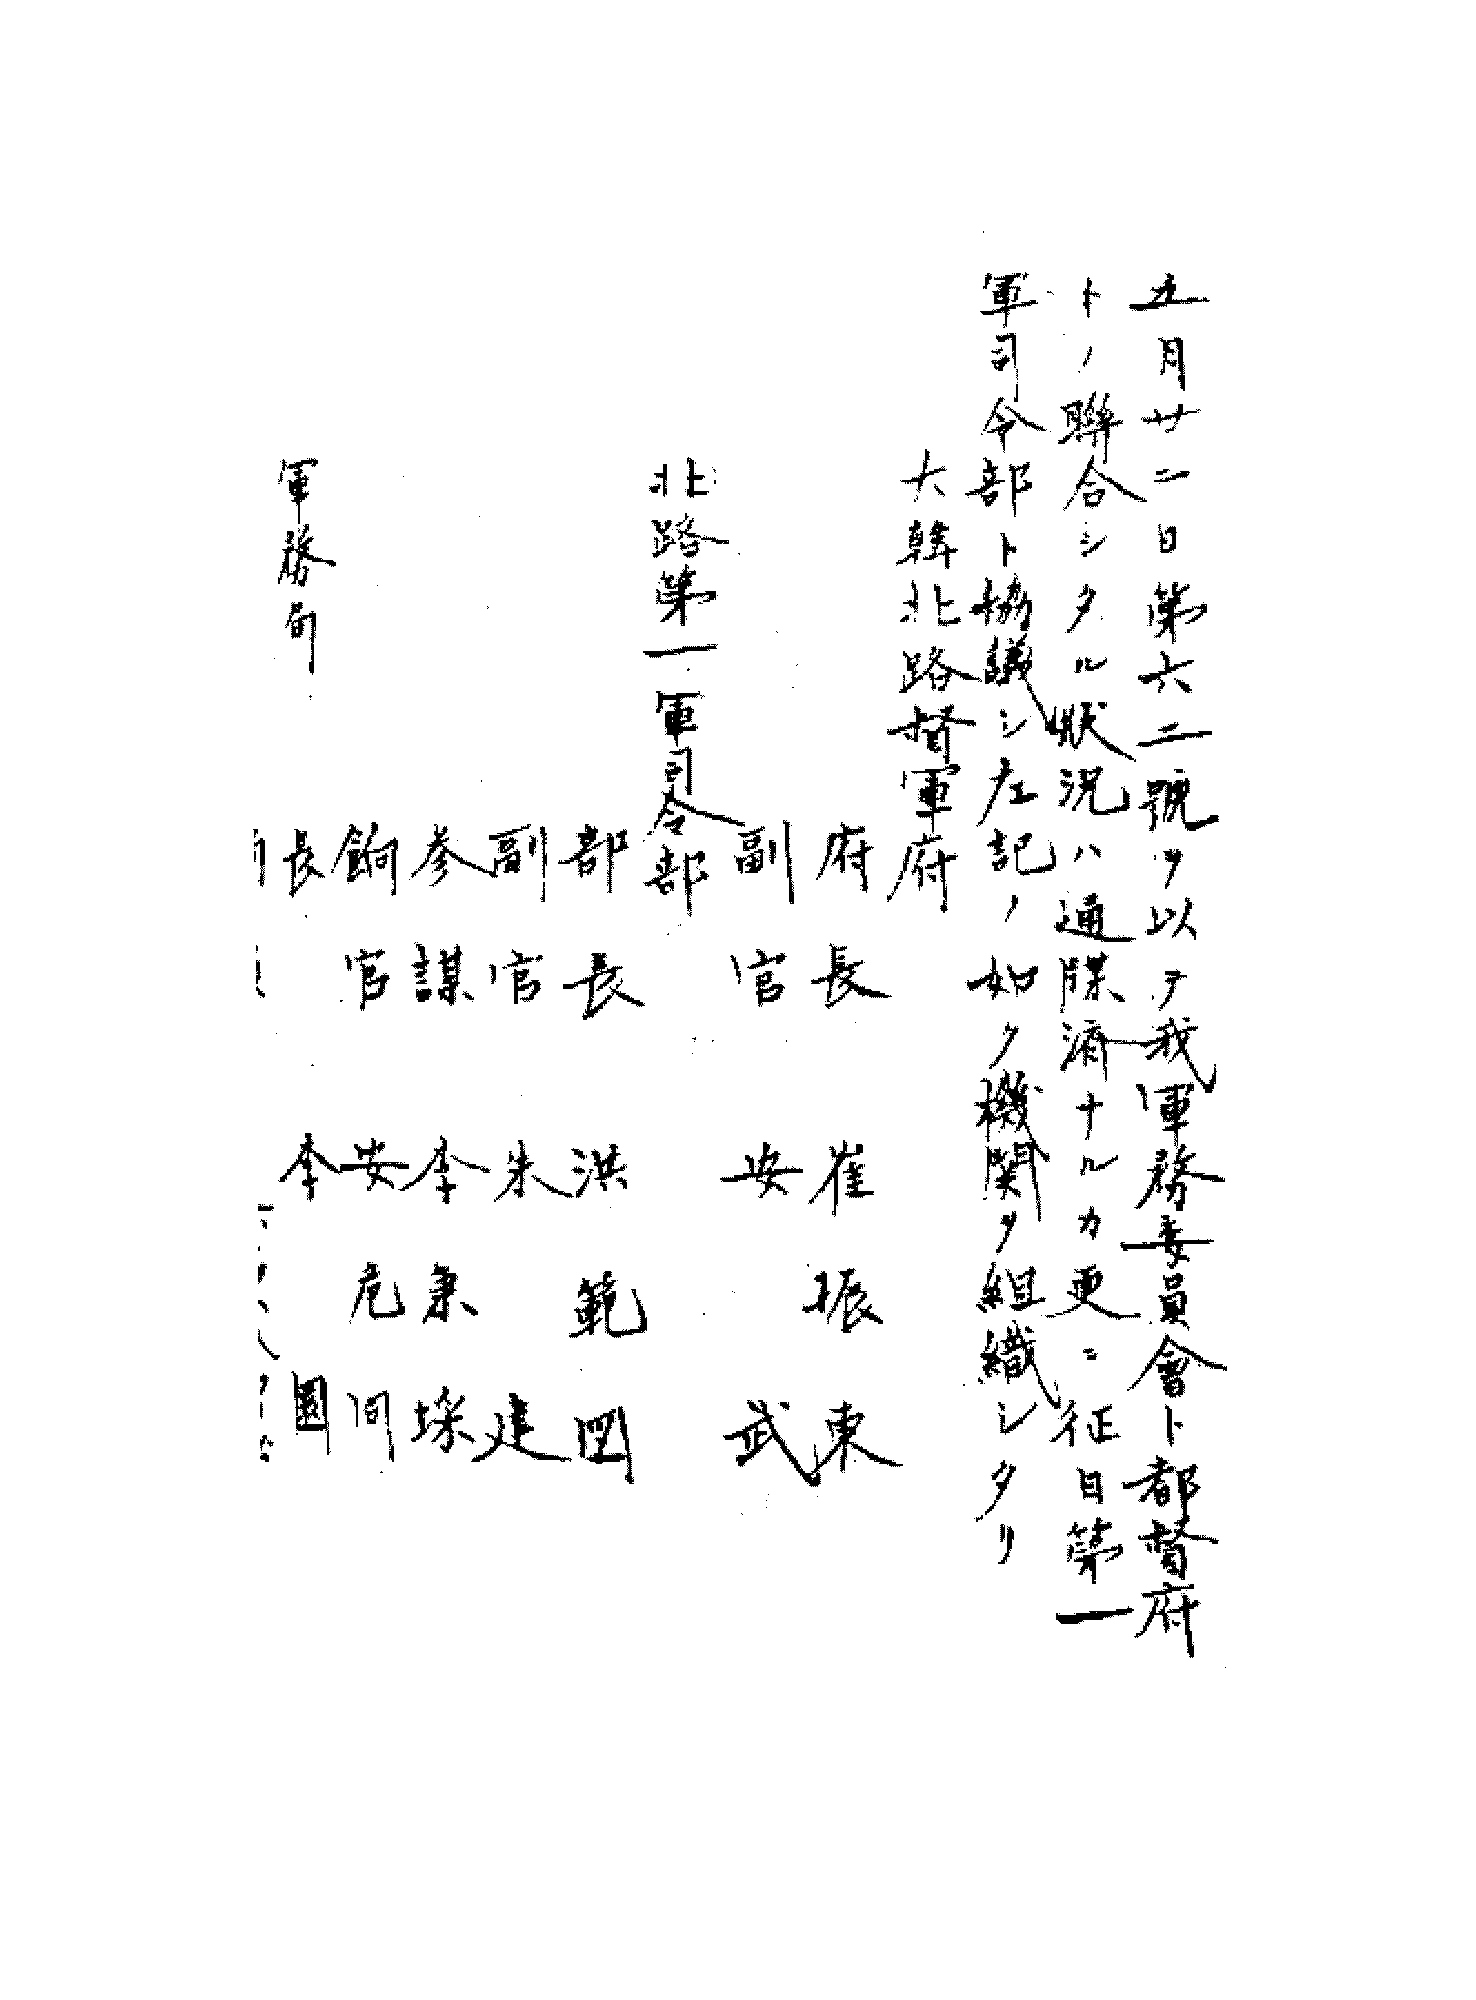 五月廿二日第六二號ヲ以テ我軍務委員會ト都督府
トノ聯合シタル状況ハ通牒濟ナルカ更ニ征日第一
軍司令部ト協議シ左記ノ如ク機関ヲ組織シタリ
大韓北路督軍府
府長 崔振東
副官 安武
北路第一軍司令部
部長 洪範図
副官 朱建
参謀 李秉埰
餉官 安危同
軍務局
長 李園